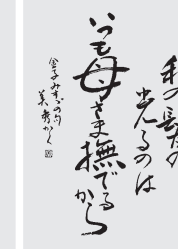 私の髪の
光るのは
いつも母さま撫でるから
金子みすゞの句
美秀かく